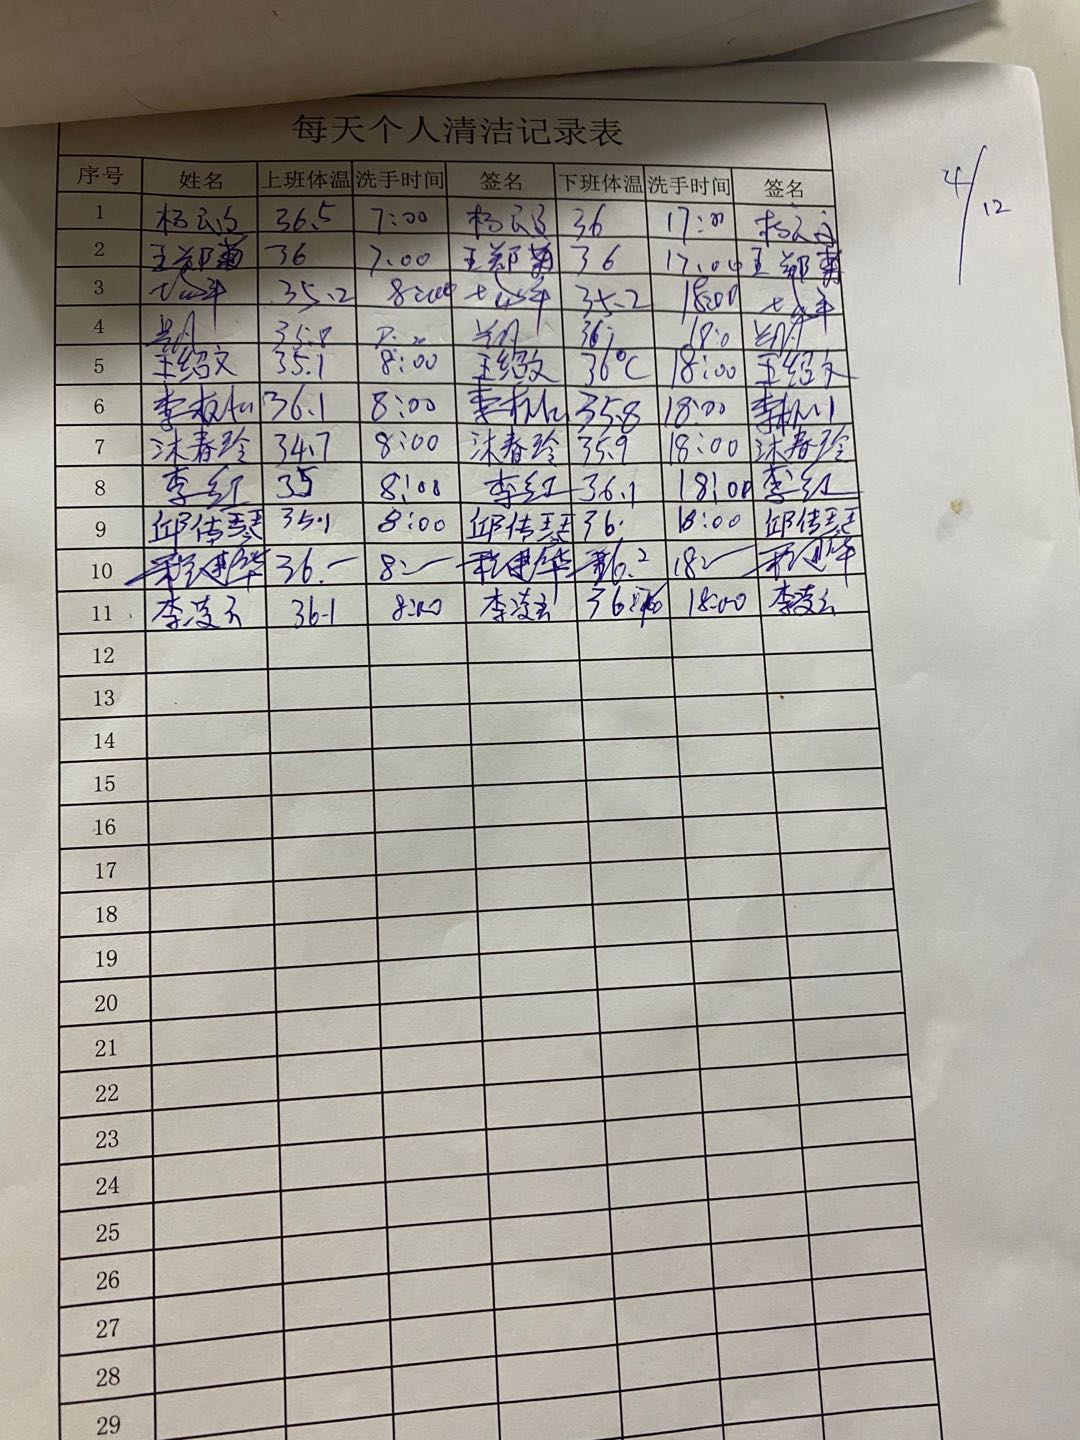 每天个人清洁记录表
4/12
序号 姓名 上班体温 洗手时间 签名 下班体温 洗手时间 签名
1 36.5 7:00 36 17:00
2 王郑菊 36 7:00 王郑菊 36 17:00 王郑菊
3 35.2 8:00 35.2 18:00
4 35.8 18:0
5 王绍文 35.1 8:00 王绍文 36℃ 18:00 王绍文
6 36.1 8:00 35.8 18:00
7 沐春玲 34.7 8:00 沐春玲 35.9 18:00 沐春玲
8 李红 35 8:00 李红 36.1 18:00 李红
9 邱传琴 35.1 8:00 邱传琴 36. 18:00 邱传琴
10 36.- 8:- 18:-
11 李凌云 36.1 8:00 李凌云 36 18:00 李凌云
12
13
14
15
16
17
18
19
20
21
22
23
24
25
26
27
28
29